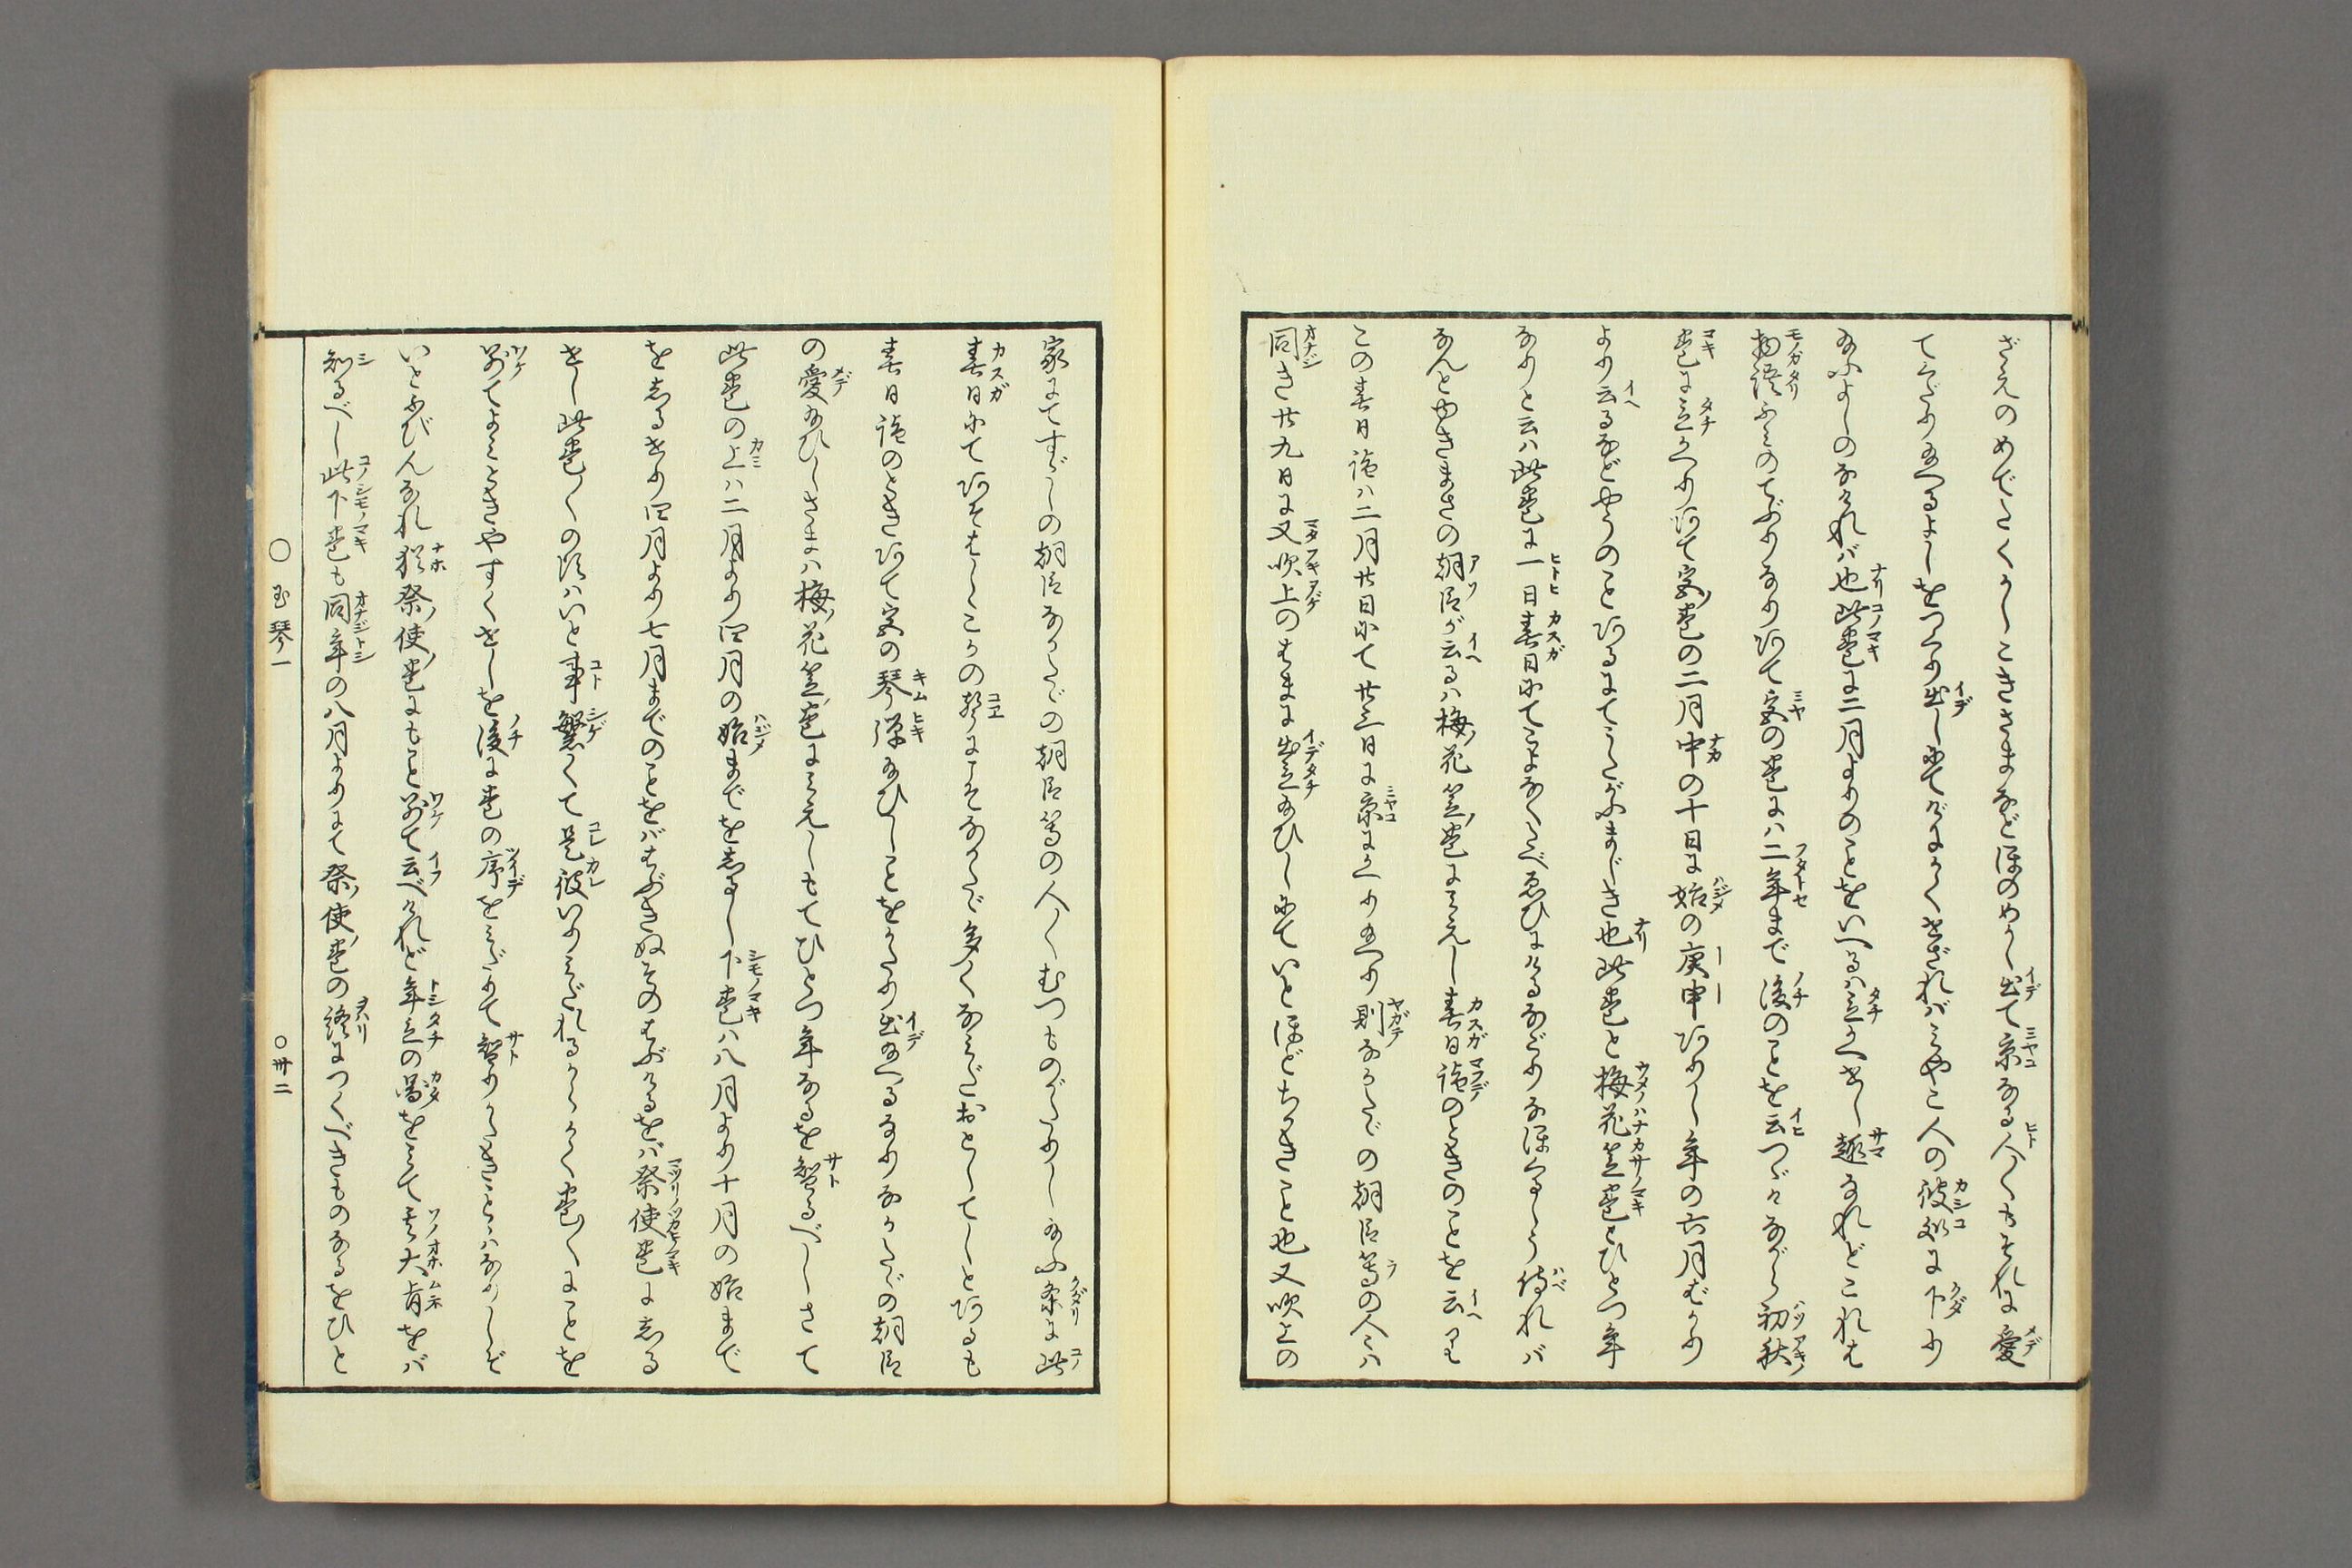 ざえのめでたくかしこきさまなどほのめかし出て京なる人〱もそれに愛
てくだり給へるよしをつくり出しにてげにかくせざればみやこ人の彼処に下り
給ふよしのなければ也此巻に二月よりのことをいへるは立かへせし趣なれどこれは
物語ふみのてぶりなりかくて宮の巻には二年まで後のことを云つゞけながら初秋
巻に立かへりかくて宮巻の二月中の十日に始の庚申ありし年の六月ばかり
より云るなどやうのことあるにてうたがふまじき也此巻と梅花笠巻とひとつ年
なりと云は此巻に一日春日にてこよなくたべゑひにけるなごりなほくるしう侍れば
なんとゆきまさの朝臣が云るは梅花笠巻にみえし春日詣のときのことを云りき
この春日詣は二月廿日にて廿三日に京にかへり給へり則なかたゞの朝臣等の人々は
同き廿九日に又吹上のはまに出立給ひしにていとほどちかきこと也又吹上の
家にてすゞしの朝臣なかたゞの朝臣等の人〱むつものがたりし給ふ条に此
春日にてあそばしゝこかの声にこそなかたゞ多くなみだおとしてしとあるも
春日詣のときあて宮の琴弾給ひしことをかたり出給へるなりなかたゞの朝臣
の愛給ひしさまは梅花笠巻にみえしもてひとつ年なるを智るべしさて
此巻の上は二月より四月の始までをしるし下巻は八月より十月の始まで
をしるせり四月より七月までのことをばはぶきぬそのはぶけるをば祭使巻にしる
せし此巻〱の頃はいと事繁くて是彼いりみだれるからかく巻〱にことを
別てよみときやすくせしを後に巻の序をみだりて智りがたきことゝはなりしぞ
いとふびんなれ猶祭使巻にもこと別て云べけれど年立の図をみて其大旨をば
知るべし此下巻も同年の八月よりにて祭使巻の終につくべきものなるをひと
〇玉琴一
〇卅二